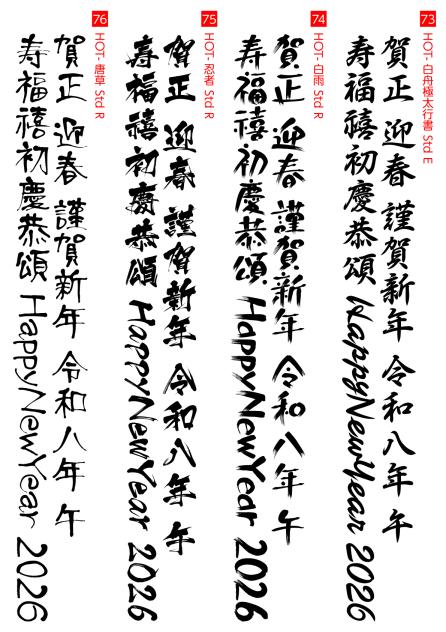 73
HOT- 白舟極太行書 Std E
賀正 迎春 謹賀新年 令和八年 午
寿福禧初慶恭頌 HappyNewYear 2026
74
HOT- 白雨 Std R
賀正 迎春 謹賀新年 令和八年 午
寿福禧初慶恭頌 HappyNewYear 2026
75
HOT- 忍者 Std R
賀正 迎春 謹賀新年 令和八年 午
寿福禧初慶恭頌 HappyNewYear 2026
76
HOT- 唐草 Std R
賀正 迎春 謹賀新年 令和八年 午
寿福禧初慶恭頌 HappyNewYear 2026